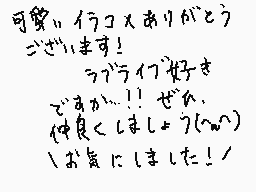 可愛いイラコメありがとう
ございます!
ラブライブ好き
ですか…!! ぜひ、
仲良くしましょう(^ω^)
\お気にしました!/